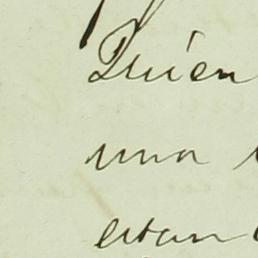 Quien
una
estan